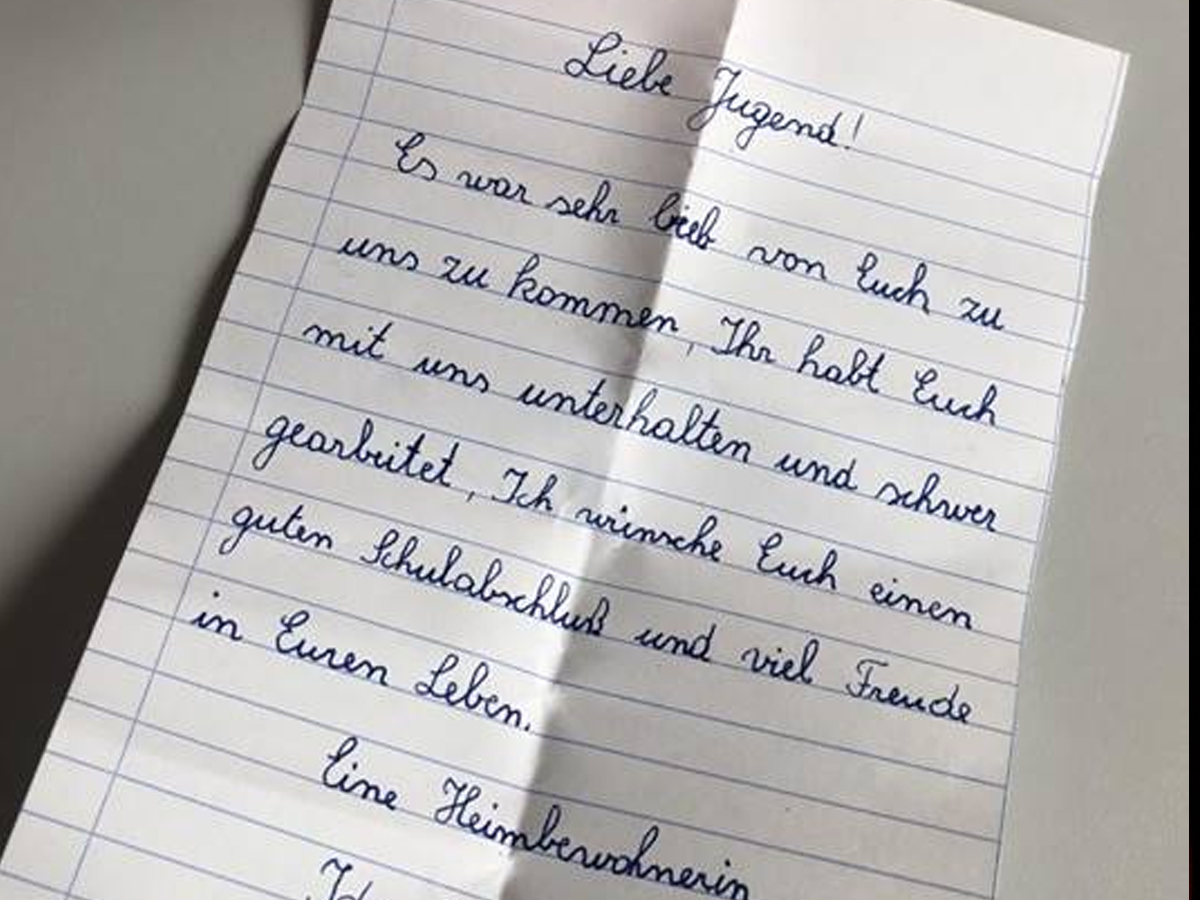 Liebe Jugend!
Es war sehr lieb von Euch zu
uns zu kommen, Ihr habt Euch
mit uns unterhalten und schwer
gearbeitet, Ich winsche Euch einen
guten Schulabschluß und viel Freude
in Euren Leben.
Eine Heimbewohnerin